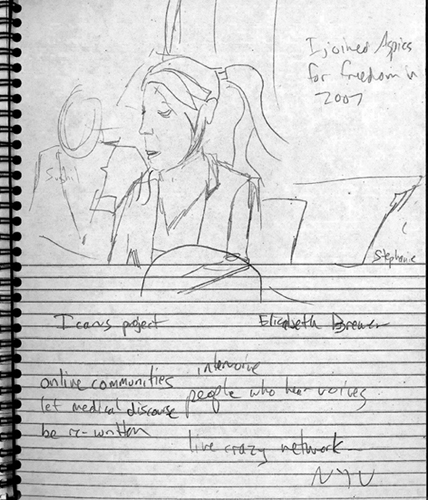 I joined Aspies
for freedom in
2007
Sushil
Stephanie
Icarus project
Elizabeth Brewer
online communities
let medical discourse
be re-written
intervoice
people who hear voices
live crazy network
NYU